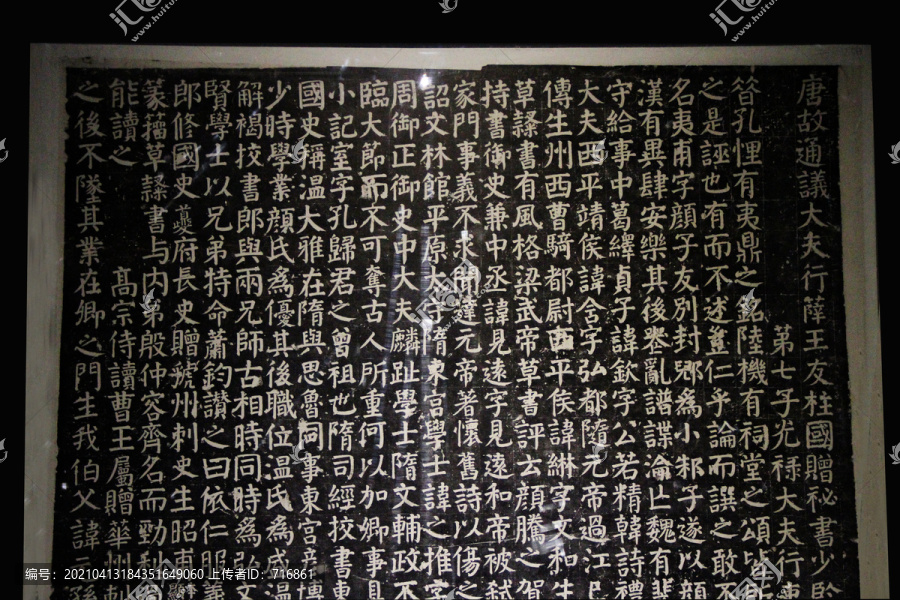 唐故通議大夫行薛王友柱國贈秘書少
第七子光祿大夫行
昔孔悝有夷鼎之銘陸機有祠堂之頌皆所
之是誣也有而不述豈仁乎論而譔之敢不
名夷甫字顏子友別封郳為小邾子遂以顏
漢有異肆安樂其後喪亂譜諜淪亡魏有斐
守給事中葛繹貞子諱欽字公若精韓詩禮
大夫西平靖侯諱含字弘都隨元帝過江已
傳生州西曹騎都尉西平侯諱綝字文和生
草隸書有風格梁武帝草書評云顏騰之賀
持書御史兼中丞諱見遠字見遠和帝被弒
家門事義不求聞達元帝著懷舊詩以傷之
詔文林館平原太守隋東宮學士諱之推字
周御正御史中大夫麟趾學士隋文輔政不
臨大節而不可奪古人所重何以加卿事具
小記室字孔歸君之曾祖也隋司經挍書東
國史稱溫大雅在隋與思魯同事東宮彥博
少時學業顏氏為優其後職位溫氏為盛溫
解褐挍書郎與兩兄師古相時同時為弘文
賢學士以兄弟特命蕭鈞讚之曰依仁服義
郎修國史夔府長史贈虢州刺史生昭甫
篆籀草隸書与內弟殷仲容齊名而勁利
能讀之 高宗侍讀曹王屬贈華州刺
之後不墜其業在卿之門生我伯父諱元孫
编号：20210413184351649060 上传者ID：716861